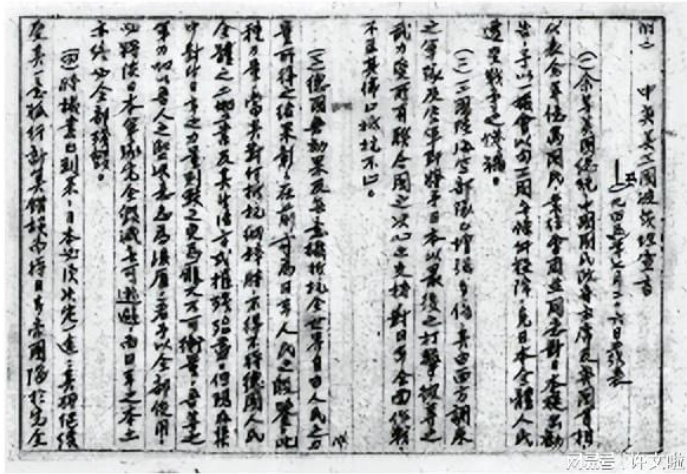 附二 中英美三國波茨坦宣言
一九四五年七月二十六日發表
(一)余等美國總統、中國國民政府主席及英國首相
代表余等億萬國民,業經會商並同意對日本提出勸
告,予以一機會以三國条件投降,免日本全體人民
遭受戰爭之慘禍。
(二)三國陸海空部隊已增強多倍,其由西方調來
之軍隊及空軍即將予日本以最後之打擊,彼等之
武力受所有聯合國之決心之支持對日本全面作戰,
不至其停止抵抗不止。
(三)德國無効果及無意識抵抗全世界自由人民之力
量所得之結果,彰彰在前,可為日本人民之殷鑒,此
種力量當其對付抵抗納粹時不得不將德國人民
全體之土地工業及其生活方式摧殘殆盡。但現在集
中對付日本之力量則較之更為龐大不可衡量。吾等之
軍力加以吾人之堅決意志為後盾,若予以全部使用,
必將使日本軍隊完全毀滅無可逃避,而日本之本土
亦終必全部殘毀。
(四)時機業已到來,日本必須決定一途,其將繼續
受其一意孤行計算錯誤而將日本帝國陷於完全
网易号 | 许文啦